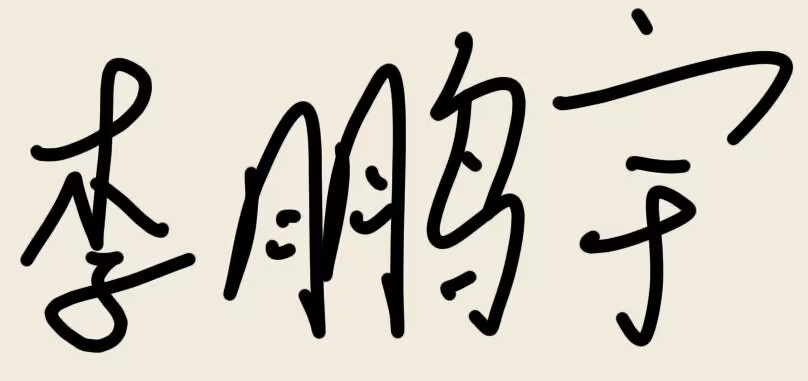 李鹏宇